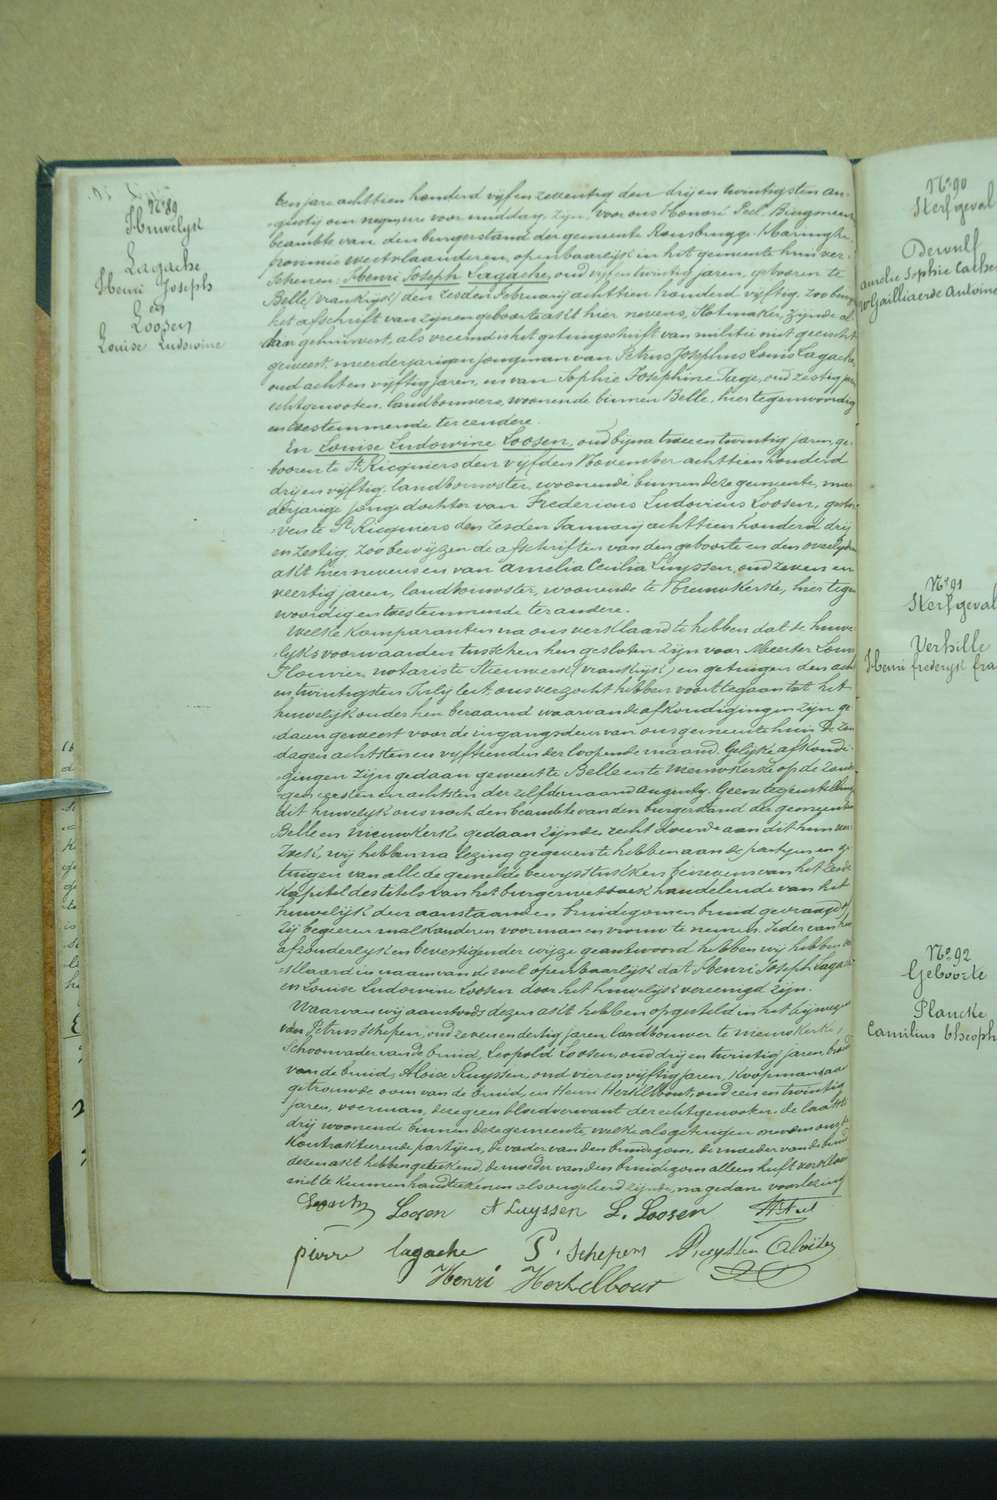 No 89
Huwelijk
Lagache
Henri Joseph
en
Loosen
Louise Ludowine
ten jare achttien honderd vijf en zeventig den drij en twintigsten au-
gusty om negen ure voor middag, zijn voor ons Honoré Peel Burgmeester
beambte van den burgerstand der gemeente Rousbrugge-Haringhe,
provincie westvlaanderen, openbaarlijk in het gemeente huis ver-
schenen: Henri Joseph Lagache, oud vijf en twintig jaren, geboren te
Belle /vrankrijk/ den zesden februarij achttien honderd vijftig, zoo
het afschrift van zijnen geboorte akt hier nevens, zijnde al
daar gehuisvest, als vreemd is het getuigschrift van militie niet geeischt
geweest, meerderjarigen jongman van Petrus Josephus Louis Lagache,
oud acht en vijftig jaren, en van Sophie Josephine Page, oud zestig jaren
echtgenooten, landbouwers, woonende binnen Belle, hier tegenwoordig
en toestemmende ter eendere.
En Louise Ludowine Loosen, oud bijna twee en twintig jaren, ge-
boren te St Ricquiers den vijfden November achttien honderd
drij en vijftig, landbouwster, woonende binnen deze gemeente, meer
derjarige jonge dochter van Fredericus Ludovicus Loosen, gestor-
ven te St Ricquiers den zesden Januarij achttien honderd drij
en zestig, zoo bewijzen de afschriften van den geboorte en den overlijden
akt hier nevens en van Amelia Cecilia Luyssen, oud zeven en
veertig jaren, landbouwster, woonende te Nieuwkerke, hier tegen
woordig en toestemmende ter andere.
Welke komparanten na ons verklaard te hebben dat de huwe-
lijks voorwaarden tusschen hen gesloten zijn voor Meester Louis
notaris te Steenwerck (vrankrijk) en getuigen den acht
en twintigsten July lest ons verzocht hebben voort te gaan tot het
huwelijk onder hen beraamd waarvan de afkondigingen zijn ge-
daan geweest voor de ingangsdeur van ons gemeente huis de Zon
dagen achtsten en vijftienden der loopende maand. Gelijke afkondi-
gingen zijn gedaan geweest te Belle en te Nieuwkerke op de zonda-
gen eersten en achtsten der zelfde maand augusty. Geene tegenstelling
dit huwelijk ons noch den beambte van den burgerstand der gemeenten
Belle en Nieuwkerke gedaan zijnde, recht doende aan dit hun ver
zoek, wij hebben na lezing gegeven te hebben aan de partijen en ge-
tuigen van alle de gemelde bewijsstukken benevens van het zesde
kapitel des titels van het burgerwetboek handelende van het
huwelijk den aanstaanden bruidegom en bruid gevraagd of
zij begeeren malkanderen voor man en vrouw te nemen. Ieder van hen
afzonderlijk en bevestigender wijze geantwoord hebben wij hebben ver
klaard in naam van de wet openbaarlijk dat Henri Joseph Lagache
en Louise Ludowine Loosen door het huwelijk vereenigd zijn.
Waarvan wij aanstonds dezen akt hebben opgesteld in het bijwezen
van Petrus Schepen, oud zeven en dertig jaren, landbouwer te Nieuwkerke,
schoonvader van de bruid, Leopold Loosen, oud drij en twintig jaren, broeder
van de bruid, Aloïse Ruyssen, oud vier en vijftig jaren, koopmansaar
getrouwde oom van de bruid, en Henri Herkelbout, oud een en twintig
jaren, voerman, deze geen bloedverwant der echtgenooten. de laatste
drij woonende binnen deze gemeente, welke als getuigen nevens ons, de
kontrakteerende partijen, de vader van den bruidegom, de moeder van de bruid
dezen akt hebben geteekend, de moeder van den bruidegom alleen heeft verklaard
niet te kunnen handteekenen als ongeleerd zijnde, na gedane voorlezing
Lagache Loosen A Luyssen L. Loosen H Peel
pierre lagache P. Schepers Ruyssen Aloïse
Henri Herkelbout
No 90
Sterfgeval
Dewulf
Aurelie Sophie Cathe
w Gailliaerde Antoine
No 91
Sterfgeval
Verhille
Henri frederyk fra
No 92
Geboorte
Plancke
Camilius Theoph